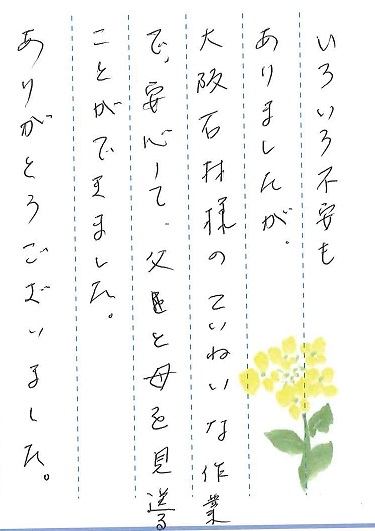 いろいろ不安も
ありましたが、
大阪石材様のていねいな作業
で、安心して、父と母を見送る
ことができました。
ありがとうございました。